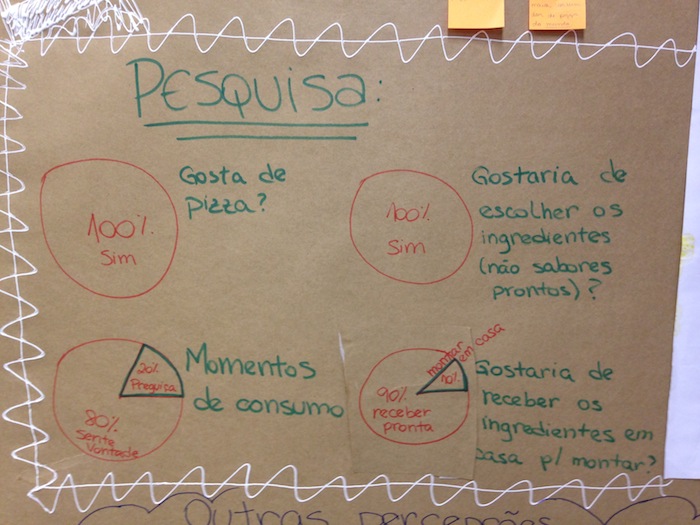 PESQUISA:
Gosta de
pizza?
100%
Sim
Gostaria de
escolher os
ingredientes
(não sabores
prontos)?
100%
Sim
Momentos
de consumo
20%
Preguiça
80%
Sente
Vontade
Gostaria de
receber os
ingredientes em
casa p/ montar?
montar
em casa
10%
90%
receber
pronta
Outras percepções